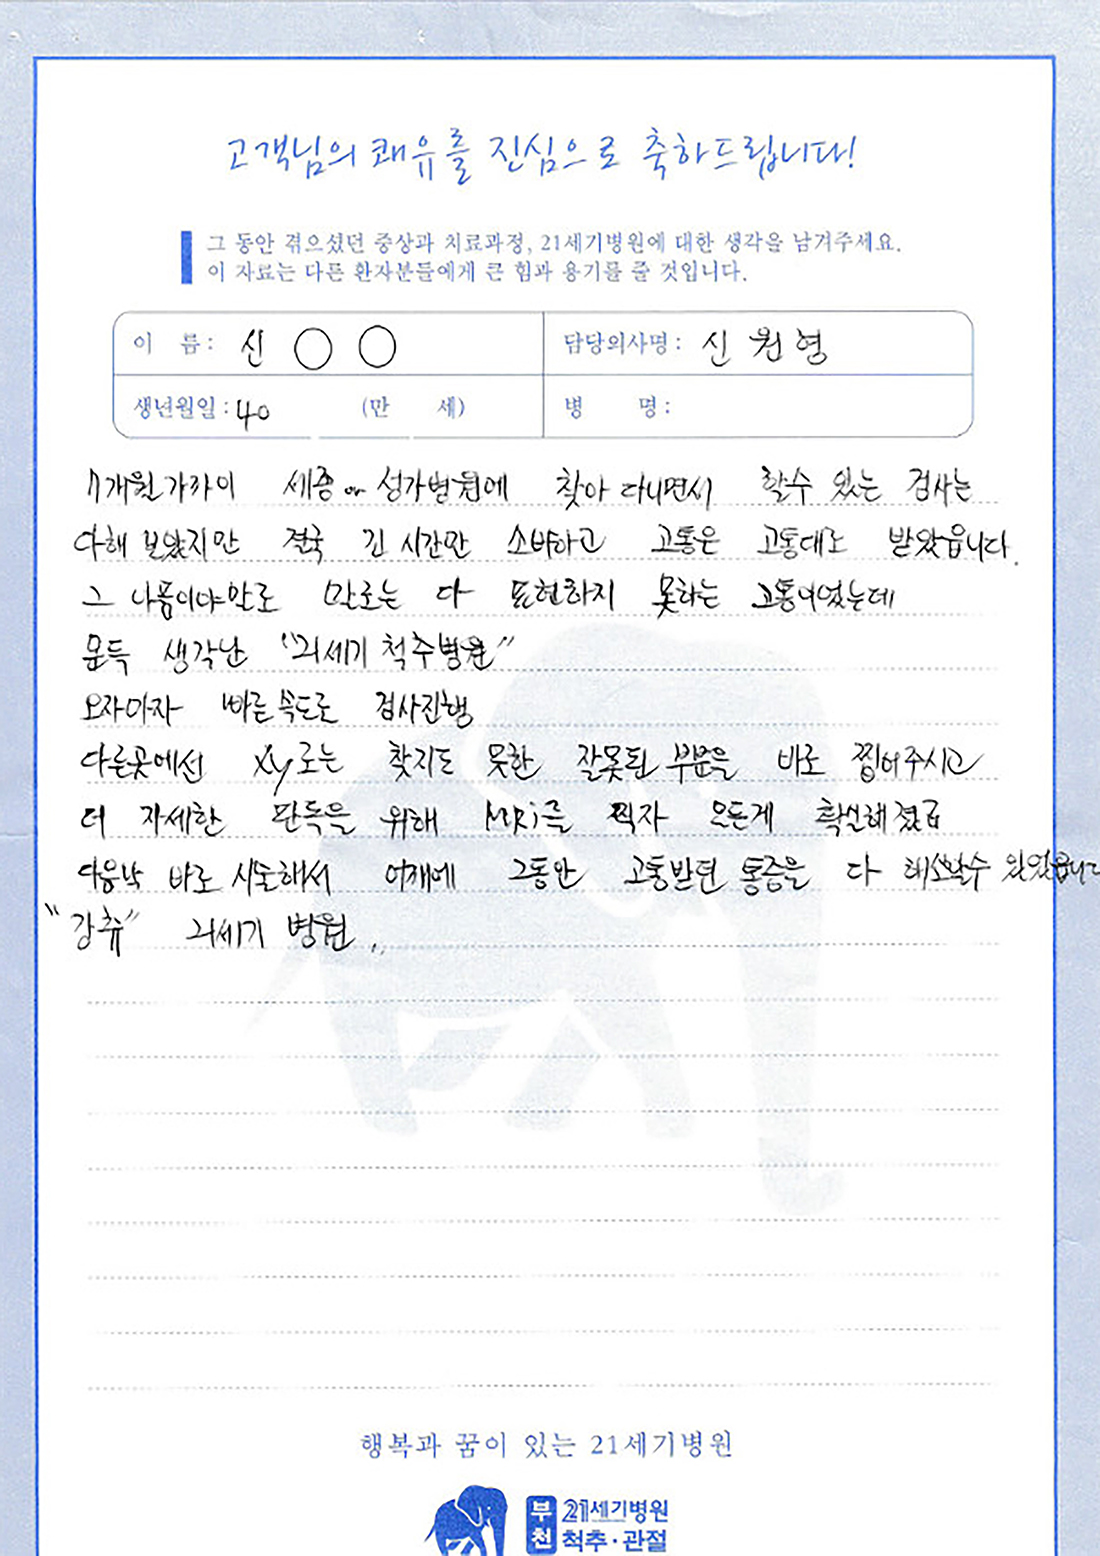 고객님의 쾌유를 진심으로 축하드립니다!
그 동안 겪으셨던 증상과 치료과정, 21세기병원에 대한 생각을 남겨주세요.
이 자료는 다른 환자분들에게 큰 힘과 용기를 줄 것입니다.
이 름 : 신 ○ ○ 담당의사명 : 신원형
생년월일 : 40 (만 세) 병 명 :
7개월가까이 세종 or 성가병원에 찾아 다니면서 할수 있는 검사는
다해 보았지만 결국 긴 시간만 소비하고 고통은 고통대로 받았읍니다.
그 나픔이야말로 말로는 다 표현하지 못하는 고통이었는데
문득 생각난 "21세기 척추병원"
오자마자 빠른속도로 검사진행
다른곳에선 Xy로는 찾지도 못한 잘못된 부분을 바로 찝어주시고
더 자세한 판독을 위해 MRi를 찍자 모든게 확실해졌고
다음날 바로 시술해서 어깨에 그동안 고통받던 통증을 다 해소할수 있었읍니다
"강츄" 21세기 병원..
행복과 꿈이 있는 21세기병원
부천 21세기병원
척추·관절